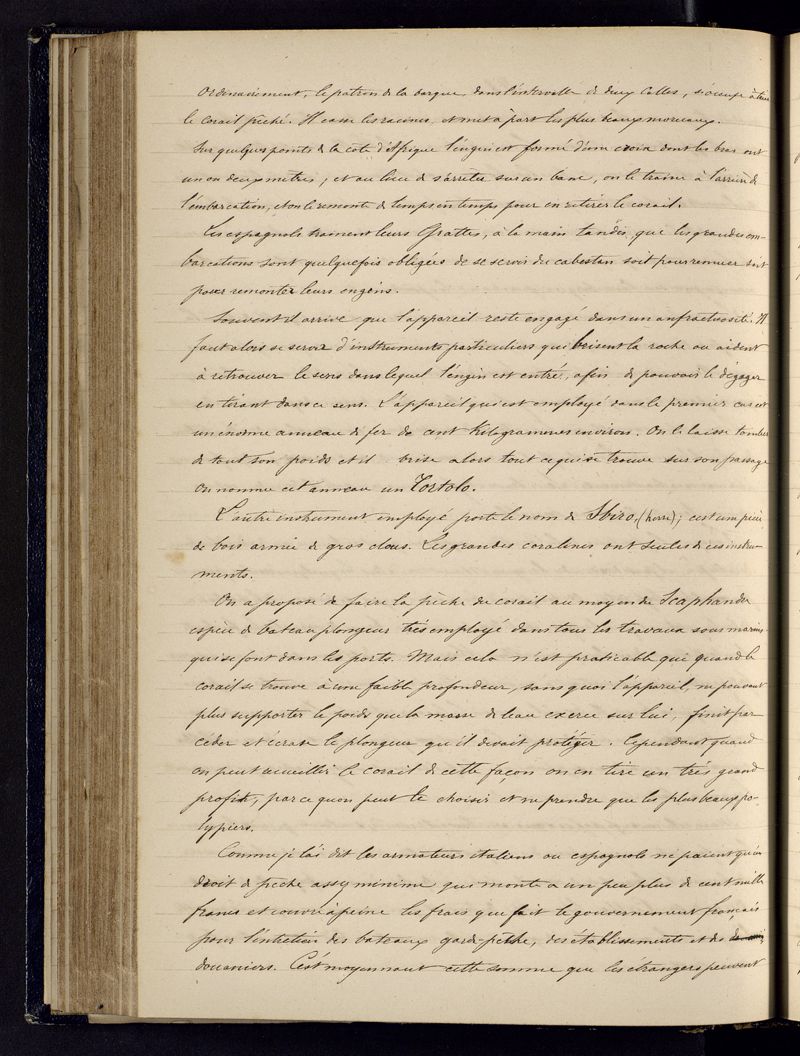 Ordinairement, le patron de la barque dans l'intervalle de deux Calles, s'occupe à trier
le corail pêché. Il casse les racines, et met à part les plus beaux morceaux.
Sur quelques points de la cote d'Afrique l'engin est formé d'une croix dont les bras ont
un ou deux metres; et au lieu de s'arreter sur un banc, on le traine à l'arrière de
l'embarcation, et on le remonte de temps en temps pour en retirer le corail.
Les espagnols trainent leurs Grattes, à la main tandis que les grandes em-
barcations sont quelquefois obligées de se servir du cabestan soit pour remuer soit
pour remonter leurs engins.
Souvent il arrive que l'appareil reste engagé dans un anfractuosité. Il
faut alors se servir d'instruments particuliers qui brisent la roche ou aident
à retrouver le sens dans lequel l'engin est entré, afin de pouvoir le dégager
en tirant dans ce sens. L'appareil qui est employé dans le premier cas est
un énorme anneau de fer de cent Kilogrammes environ. On le laisse tomber
de tout son poids et il brise alors tout ce qui se trouve sur son passage
on nomme cet anneau un Tortolo.
L'autre instrument employé porte le nom de Sbiro, (herse); c'est une pièce
de bois armée de gros clous. Les grandes coralines ont seules de ces instru-
ments.
On a proposé de faire la pêche du corail au moyen de Scaphandre
espèce de bateau plongeur très employé dans tous les travaux sous marins
qui se font dans les ports. Mais cela n'est praticable que quand le
corail se trouve à une faible profondeur, sans quoi l'appareil, ne pouvant
plus supporter le poids que la masse de l'eau exerce sur lui, finit par
céder et écrase le plongeur qu'il devait protéger. Cependant quand
on peut recueillir le corail de cette façon on en tire un très grand
profit, parce qu'on peut le choisir et ne prendre que les plus beaux po-
lypiers.
Comme je l'ai dit les armateurs italiens ou espagnols ne paient qu'un
droit de pêche assez minime qui monte a un peu plus de cent mille
francs et couvre à peine les frais que fait le gouvernement français
pour l'entretien des bateaux garde-pêche, des établissements et des
douaniers. C'est moyennant cette somme que les étrangers peuvent